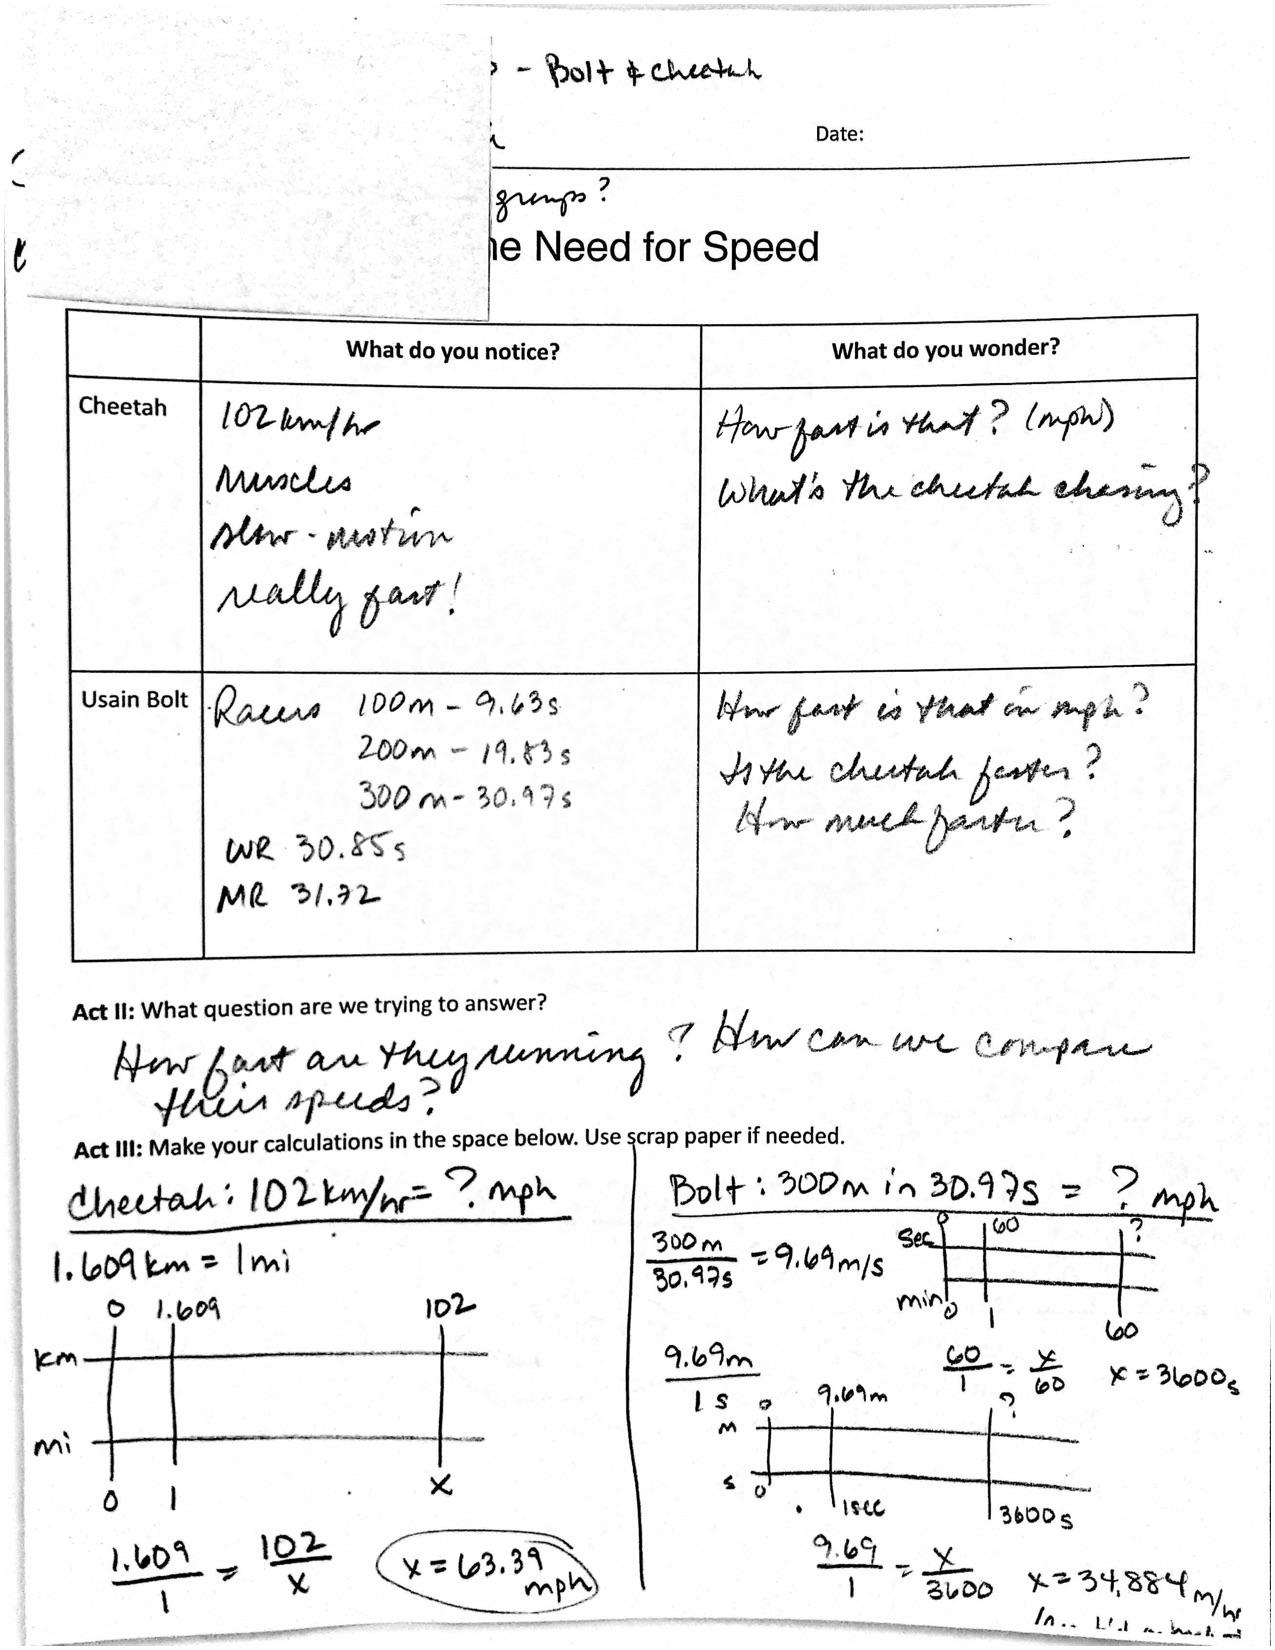 - Bolt & cheetah
Date:
groups?
Need for Speed
What do you notice?
What do you wonder?
Cheetah
102 km/hr
Muscles
slow-motion
really fast!
How fast is that? (mph)
What's the cheetah chasing?
Usain Bolt
Racers 100m - 9.63s
200m - 19.83s
300m - 30.97s
WR 30.85s
MR 31.72
How fast is that in mph?
Is the cheetah faster?
How much faster?
Act II: What question are we trying to answer?
How fast are they running? How can we compare
their speeds?
Act III: Make your calculations in the space below. Use scrap paper if needed.
Cheetah: 102 km/hr = ? mph
1.609 km = 1 mi
0 1.609 102
km
mi
0 1 x
1.609/1 = 102/x
x = 63.39 mph
Bolt: 300m in 30.97s = ? mph
300m/30.97s = 9.69 m/s
0 60 ?
sec
min
0 1 60
60/1 = x/60 x = 3600s
9.69m/1s
0 9.69m ?
m
s
0 1sec 3600s
9.69/1 = x/3600 x = 34,884 m/hr